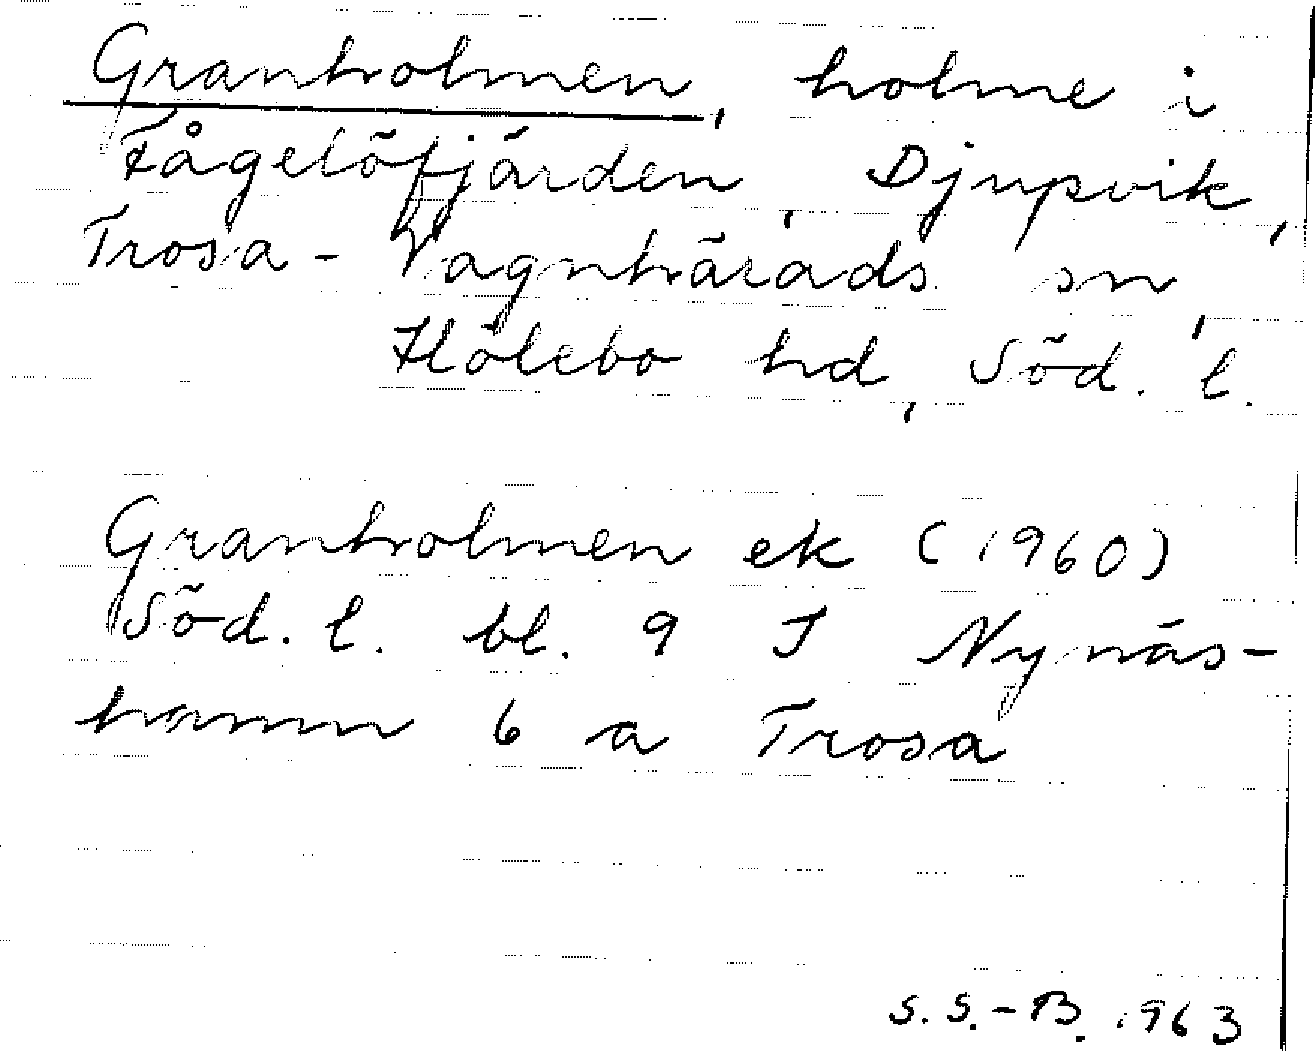 Granholmen, holme i
Fågelöfjärden, Djupvik,
Trosa-Vagnhärads sn,
Hölebo hd, Söd. l.
Granholmen ek (1960)
Söd. l. bl. 9 I Nynäs-
hamn 6 a Trosa
S. S.-B. 1963